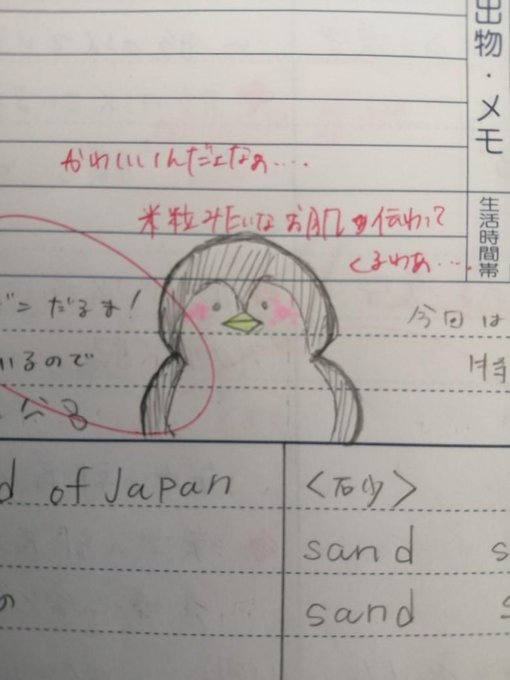 出物・メモ
かわいいんだよなぁ....
米粒みたいなお肌も伝わって
くるわぁ....
生活時間帯
だるま！
今回は
いるので
特
なる
d of Japan
<砂>
sand s
の
sand s